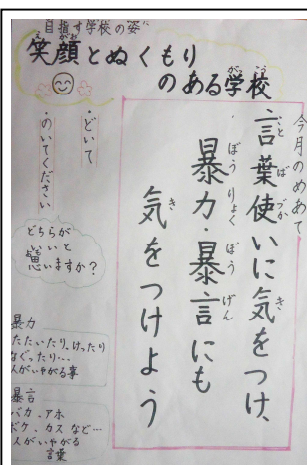 目指す学校の姿
笑顔とぬくもり
のある学校
今月のめあて
言葉使いに気をつけ、
暴力・暴言にも
気をつけよう
・どいて
・のいてください
どちらが
いいと
思いますか？
暴力
たたいたり、けったり
なぐったり…
人がいやがる事
暴言
バカ、アホ
ボケ、カスなど…
人がいやがる
言葉